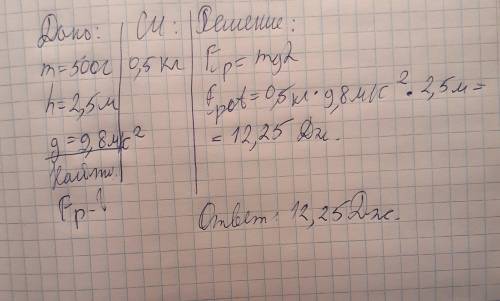 Дано: СИ: Решение:
m=500г 0,5 кг Ep= mg2
h=2,5м Epot=0,5кг·9,8м/с²·2,5м=
g=9,8м/с² =12,25 Дж.
Найти:
Ep-?
Ответ: 12,25Дж.